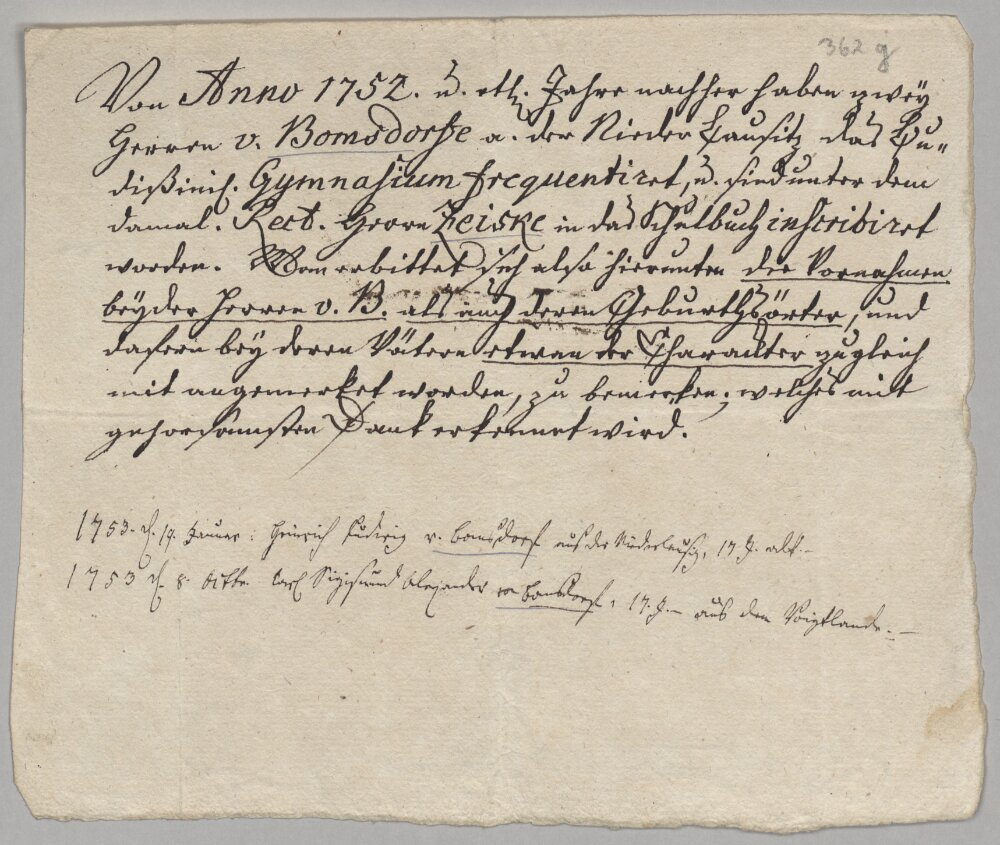 362 g
Von Anno 1752. u. etl. Jahre nachher haben zwey
Herren v. Bomsdorffe a. der Nieder Lausitz das Bu-
dißinis. Gymnasium frequentiret, u. sind unter dem
damal. Rect. Herrn Zeiske in das Schulbuch inscribiret
worden. Man erbittet sich also hierunten die Vornahmen
beyder Herren v. B. als auch deren Geburths örter, und
dafern bey deren Vätern etwan der Charackter zugleich
mit angemerket worden, zu bemerken; welches mit
gehorsamsten Dank erkennet wird.
1753. d. 19. Januar: Heinrich Ludwig v. Bomsdorf aus der Niederlausiz, 17 J. alt.-
1753 d. 8. Octbr. Carl Sigismund Alexander von Bomsdorf, 17. J.- aus dem Voigtlande.-